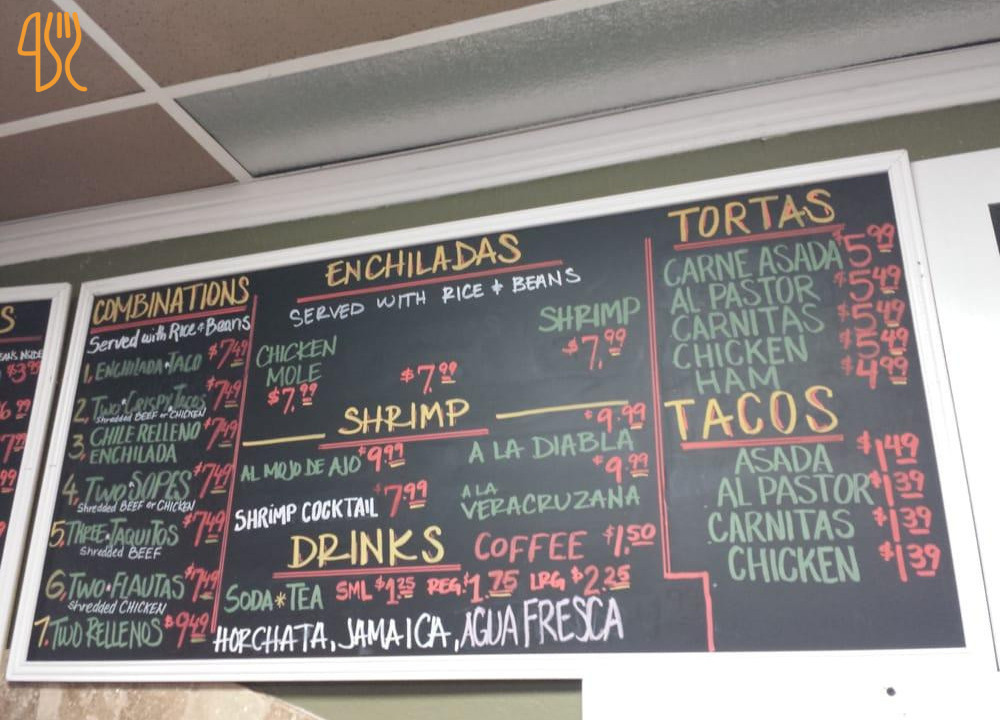 S
$3.99
COMBINATIONS
Served with Rice & Beans
1. ENCHILADA·TACO $7.49
2. TWO·CRISPY TACOS $7.49
shredded BEEF or CHICKEN
3. CHILE RELLENO $7.49
ENCHILADA
4. TWO·SOPES $7.49
shredded BEEF or CHICKEN
5. THREE·TAQUITOS $7.49
shredded BEEF
6. TWO·FLAUTAS $7.49
shredded CHICKEN
7. TWO RELLENOS $9.49
ENCHILADAS
SERVED WITH RICE & BEANS
CHICKEN
MOLE
$7.99
$7.99
SHRIMP
$7.99
SHRIMP
AL MOJO DE AJO $9.99
SHRIMP COCKTAIL $7.99
$9.99
A LA DIABLA
$9.99
A LA
VERACRUZANA
DRINKS
COFFEE $1.50
SODA * TEA SML $1.25 REG. $1.75 LRG $2.25
HORCHATA, JAMAICA, AGUA FRESCA
TORTAS
CARNE ASADA $5.99
AL PASTOR $5.49
CARNITAS $5.49
CHICKEN $5.49
HAM $4.99
TACOS
ASADA $1.49
AL PASTOR $1.39
CARNITAS $1.39
CHICKEN $1.39